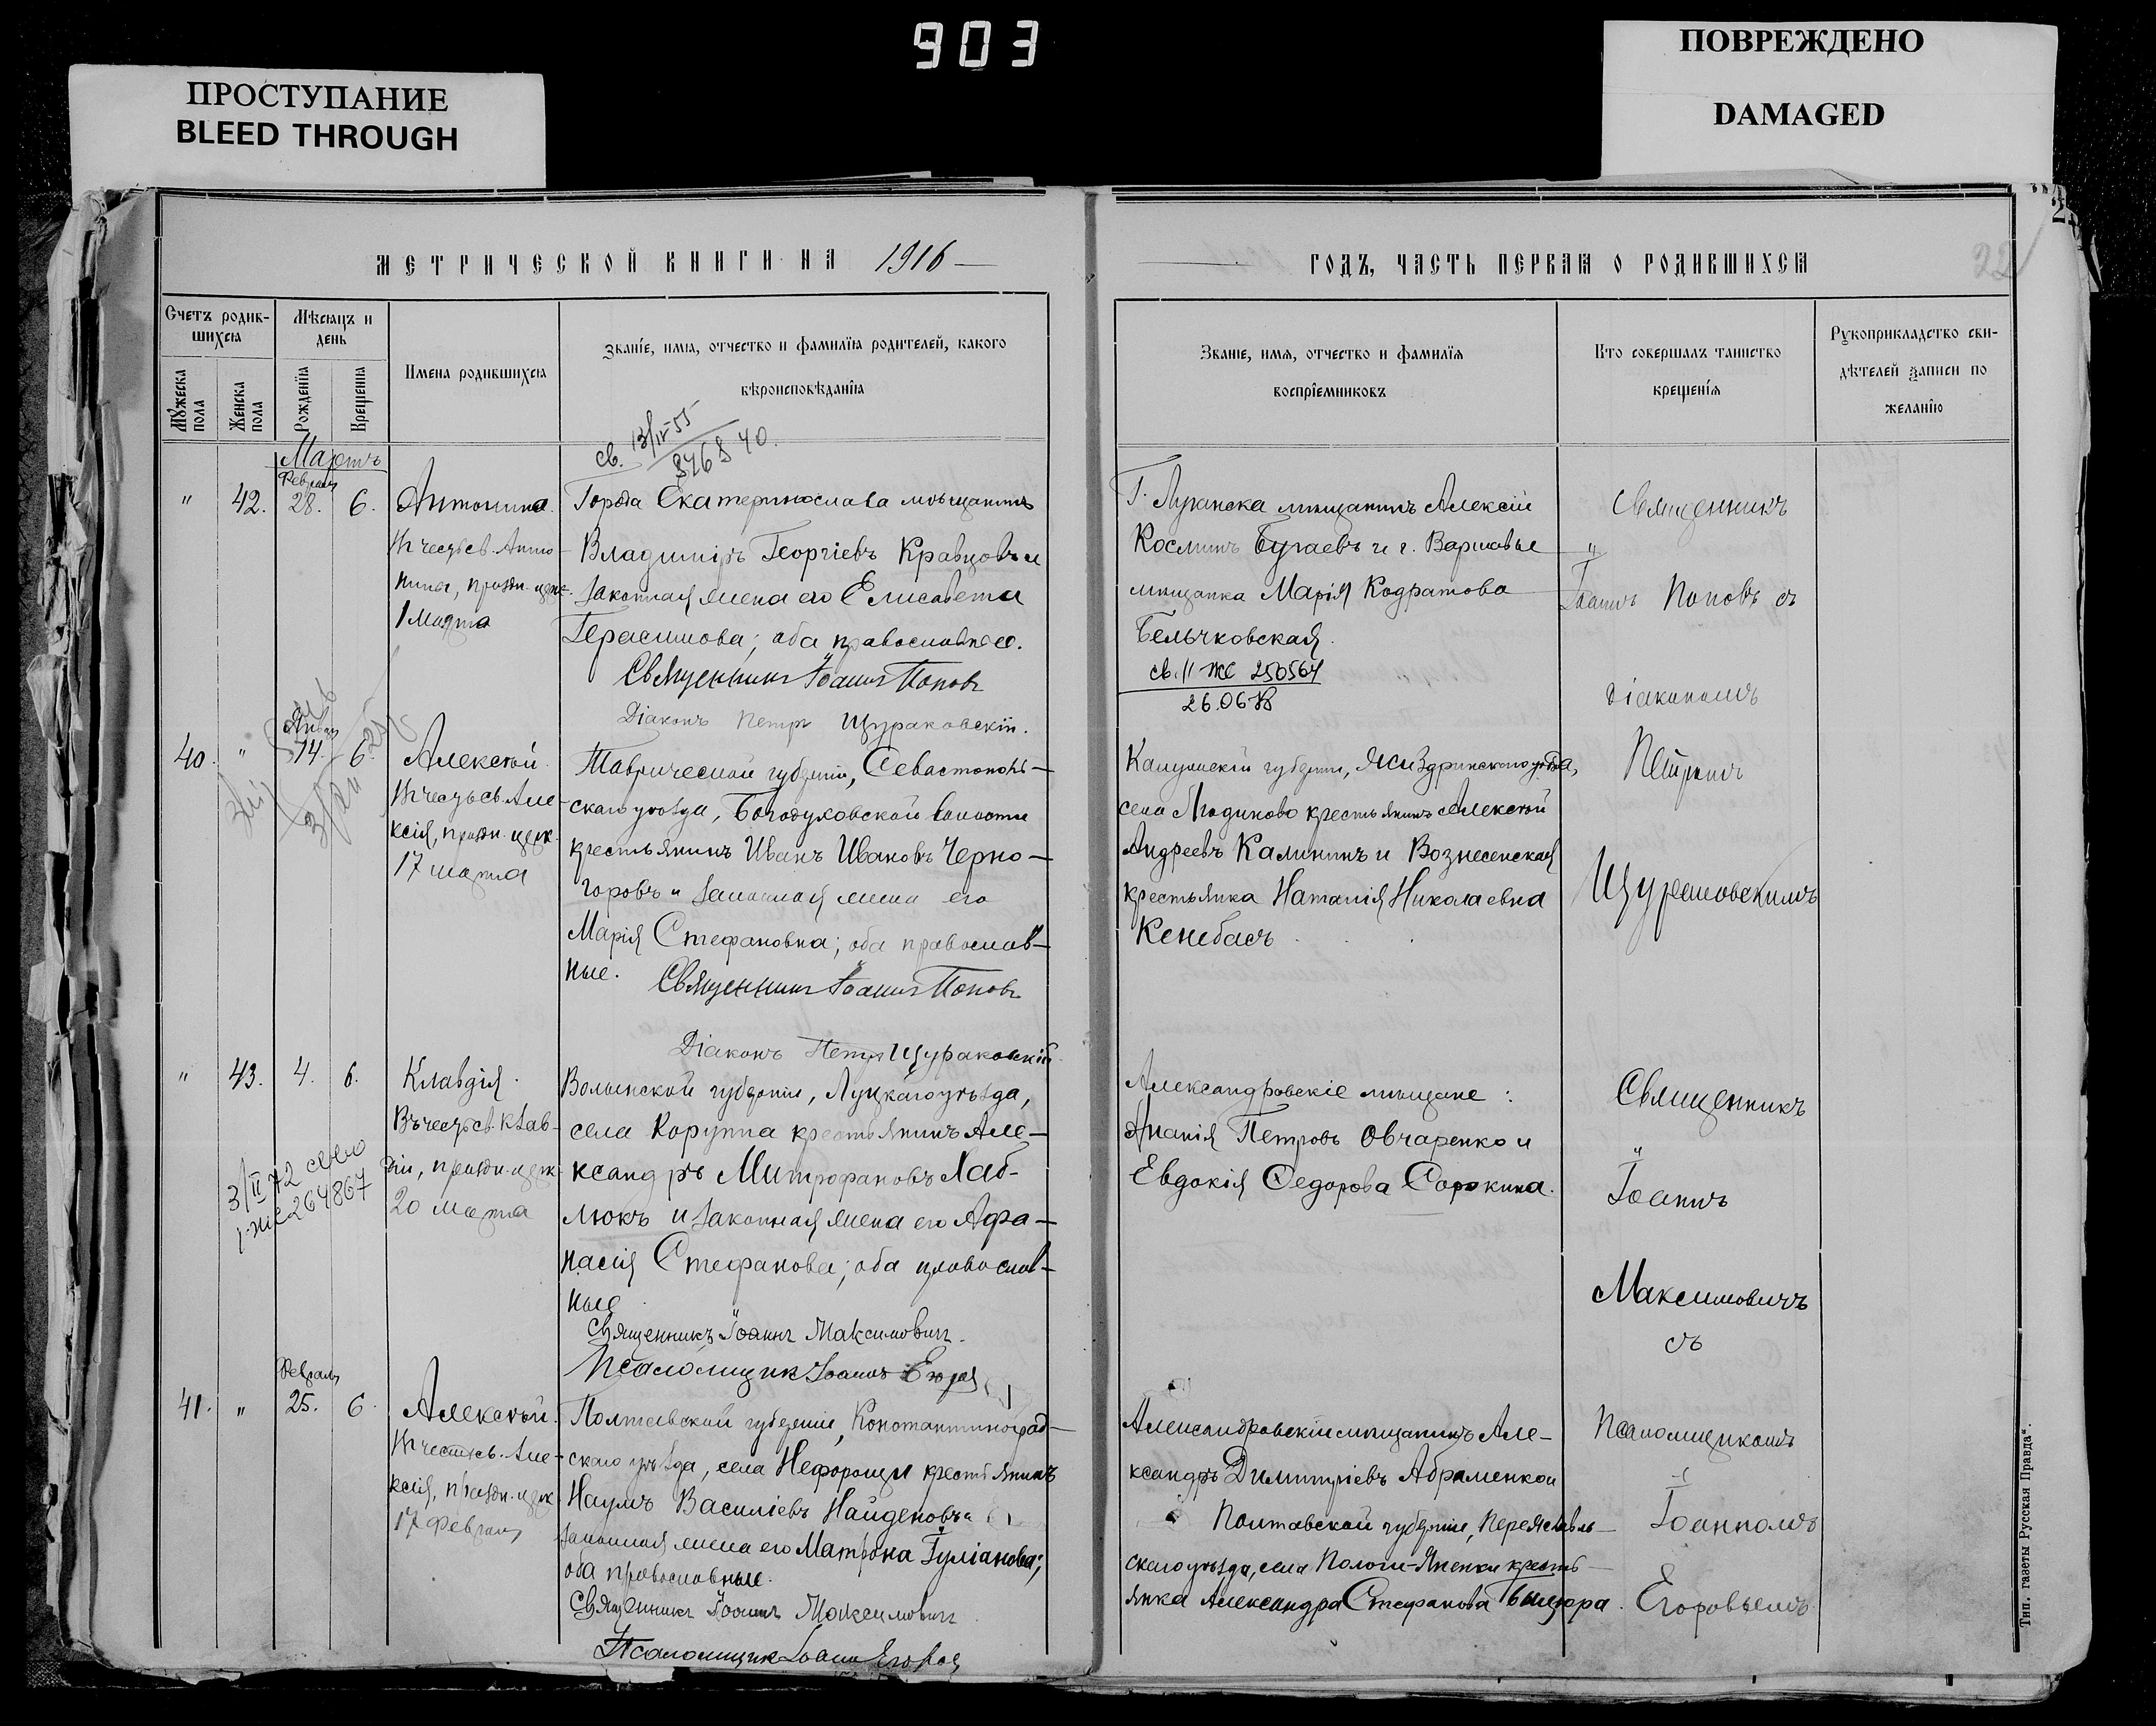 903
ПРОСТУПАНИЕ
BLEED THROUGH
ПОВРЕЖДЕНО
DAMAGED
МЕТРИЧЕСКОЙ КНИГИ НА 1916
Счетъ родив-
шихся
Мѣсяцъ и
день
Имена родившихся
Званіе, имя, отчество и фамилія родителей, какого
вѣроисповѣданія
Мужеска
пола
Женска
пола
Рожденія
Крещенія
св. 13/IV-55
Мартъ
Февраля
" 42. 28. 6.
Антонина.
Въ честь св. Анто-
нины, праздн. церк.
1 марта
Города Екатеринослава мѣщанинъ
Владиміръ Георгіевъ Кравцовъ и
законная жена его Елисавета
Герасимова; оба православные.
Священникъ Іоаннъ Поповъ
Діаконъ Петръ Щураковскій.
Январ
40. " 14. 6.
Алексѣй.
Въ честь св. Але-
ксія, праздн. церк.
17 марта
Таврической губерніи, Севастополь-
скаго уѣзда, Богодуховской волости
крестьянинъ Иванъ Ивановъ Черно-
горовъ и законная жена его
Марія Стефановна; оба православ-
ные.
Священникъ Іоаннъ Поповъ
Діаконъ Петръ Щураковскій
" 43. 4. 6.
Клавдія.
Въ честь св. Клав-
діи, праздн. церк.
20 марта
3/II 72
264867
Волынской губерніи, Луцкаго уѣзда,
села Коруппа крестьянинъ Але-
ксандръ Митрофановъ Хаб-
люкъ и законная жена его Афа-
насія Стефанова; оба православ-
ные
Священникъ Іоаннъ Максимовичъ.
Псаломщикъ Іоаннъ Егоровъ
Февраля
41. " 25. 6.
Алексѣй.
Въ честь св. Але-
ксія, праздн. церк.
17 Февраля
Полтавской губерніи, Константиноград-
скаго уѣзда, села Нефорощи крестьянинъ
Наумъ Василіевъ Найденовъ и
законная жена его Матрона Гуліанова;
оба православные.
Священникъ Іоаннъ Максимовичъ
Псаломщикъ Іоаннъ Егоровъ
ГОДЪ, ЧАСТЬ ПЕРВАЯ О РОДИВШИХСЯ
22
Званіе, имя, отчество и фамилія
воспріемниковъ
Кто совершалъ таинство
крещенія
Рукоприкладство сви-
дѣтелей записи по
желанію
Г. Луганска мѣщанинъ Алексій
Косминъ Бугаевъ и г. Варшавы
мѣщанка Марія Кодратова
Бельчковская.
св. II ЖС 250564
Священникъ
Іоаннъ Поповъ съ
діакономъ
Петромъ
Щураковскимъ
Калужской губерніи, Жиздринскаго уѣзда,
села Людиково крестьянинъ Алексѣй
Андреевъ Калининъ и Вознесенская
крестьянка Наталія Николаевна
Кенебасъ
Александровскіе мѣщане:
Ананія Петровъ Овчаренко и
Евдокія Ѳедорова Сорокина.
Священникъ
Іоаннъ
Максимовичъ
съ
Александровскій мѣщанинъ Але-
ксандръ Димитріевъ Абраменко и
Полтавской губерніи, Переяславль-
скаго уѣзда, села Пологи-Яненки кресть-
янка Александра Стефанова
Псаломщикомъ
Іоанномъ
Егоровымъ.
Тип. газеты "Русская Правда".